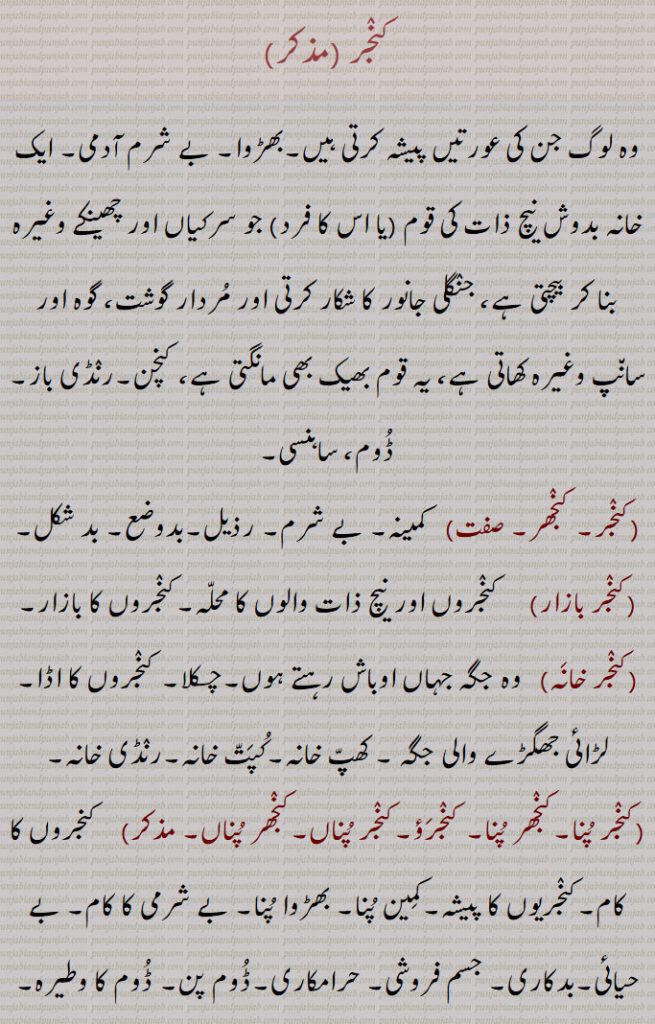 کنْجر (مذکر)
وہ لوگ جن کی عورتیں پیشہ کرتی ہیں۔بھڑوا۔ بے شرم آدمی۔ ایک
خانہ بدوش نیچ ذات کی قوم (یا اس کا فرد) جو سرکیاں اور چھینکے وغیرہ
بنا کر بیچتی ہے، جنْگلی جانور کا شکار کرتی اور مُردار گوشت، گوہ اور
سانْپ وغیرہ کھاتی ہے، یہ قوم بھیک بھی مانگتی ہے، کنچن۔رنْڈی باز۔
ڈُوم، ساہنسی۔
(کنْجر۔ کنْجھر۔ صفت) کمینہ۔ بے شرم۔ رذیل۔بدوضع۔ بد شکل۔
(کنْجر بازار) کنْجروں اور نیچ ذات والوں کا محلّہ۔کنْجروں کا بازار۔
(کنْجر خانَہ) وہ جگہ جہاں اوباش رہتے ہوں۔چکلا۔ کنْجروں کا اڈا۔
لڑائی جھگڑے والی جگہ ۔ کھپّ خانہ۔کُپتّ خانہ۔رنْڈی خانہ۔
(کنْجر پُنا۔کنْجھر پُنا۔ کنْجرَؤ۔کنْجر پُناں۔کنْجھر پُناں۔ مذکر) کنجروں کا
کام۔کنْجریوں کا پیشہ۔کمِین پُنا۔ بھڑوا پُنا۔ بے شرمی کا کام۔ بے
حیائی۔بدکاری۔ جسم فروشی۔ حرامکاری۔ڈُوم پن۔ ڈُوم کا وطیرہ۔